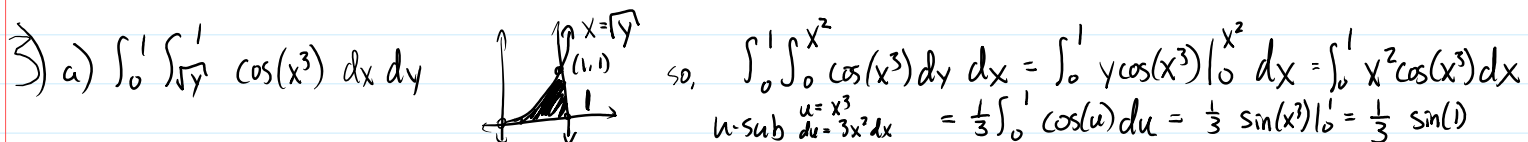 3) a) ∫₀¹ ∫_√y¹ cos(x³) dx dy x=√y (1,1) 1 so, ∫₀¹ ∫₀^x² cos(x³) dy dx = ∫₀¹ y cos(x³)|₀^x² dx = ∫₀¹ x² cos(x³) dx
u-sub u = x³ du = 3x² dx = 1/3 ∫₀¹ cos(u) du = 1/3 sin(x³)|₀¹ = 1/3 sin(1)